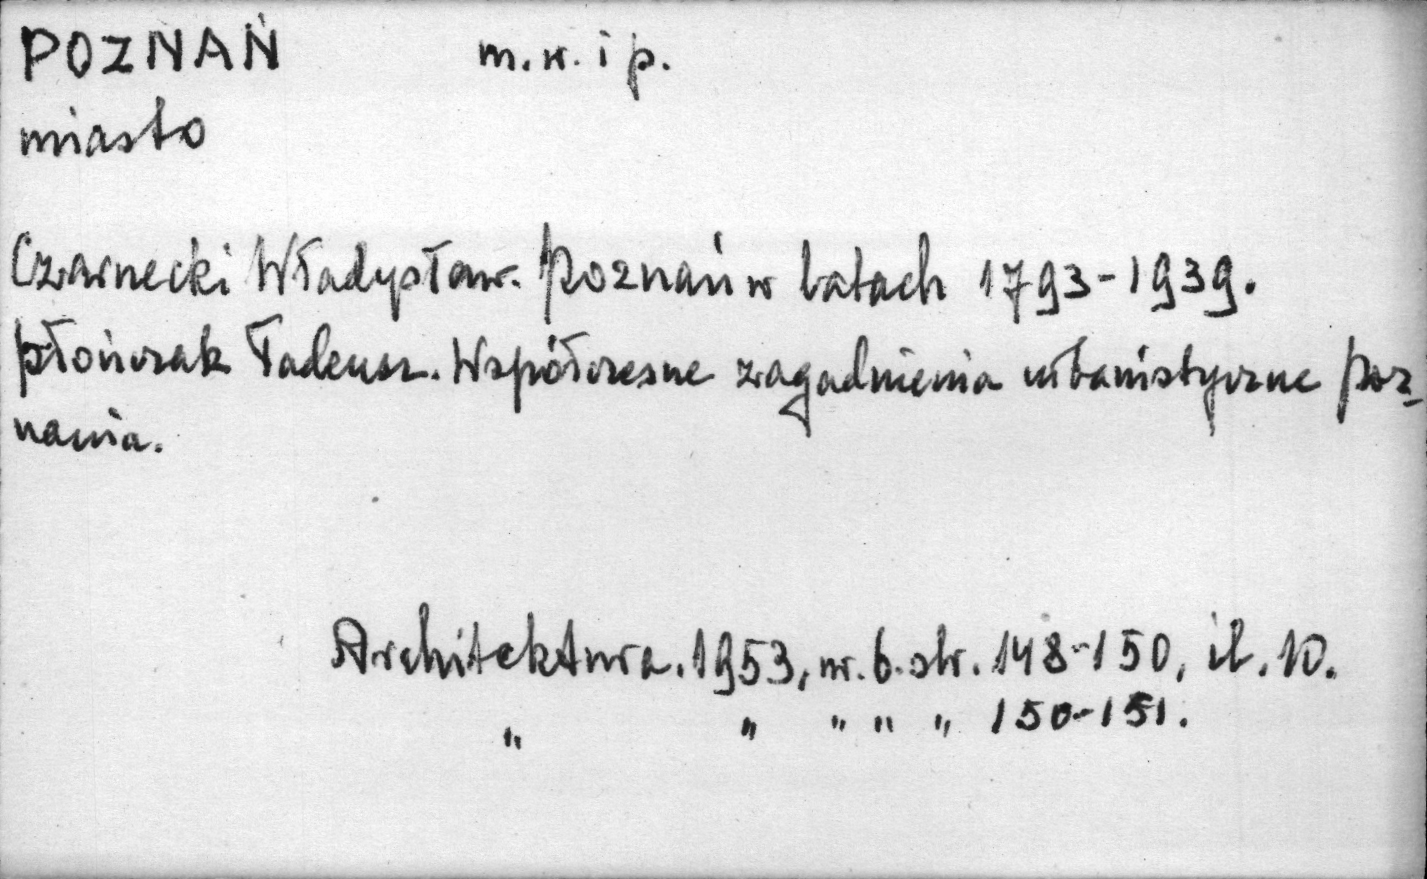 POZNAŃ m. w. i p.
miasto
Czarnecki Władysław. Poznań w latach 1793-1939.
Płończak Tadeusz. Współczesne zagadnienia urbanistyczne Poz-
nania.
Architektura. 1953, nr. 6. str. 148-150, il. 10.
" " " " " 150-151.